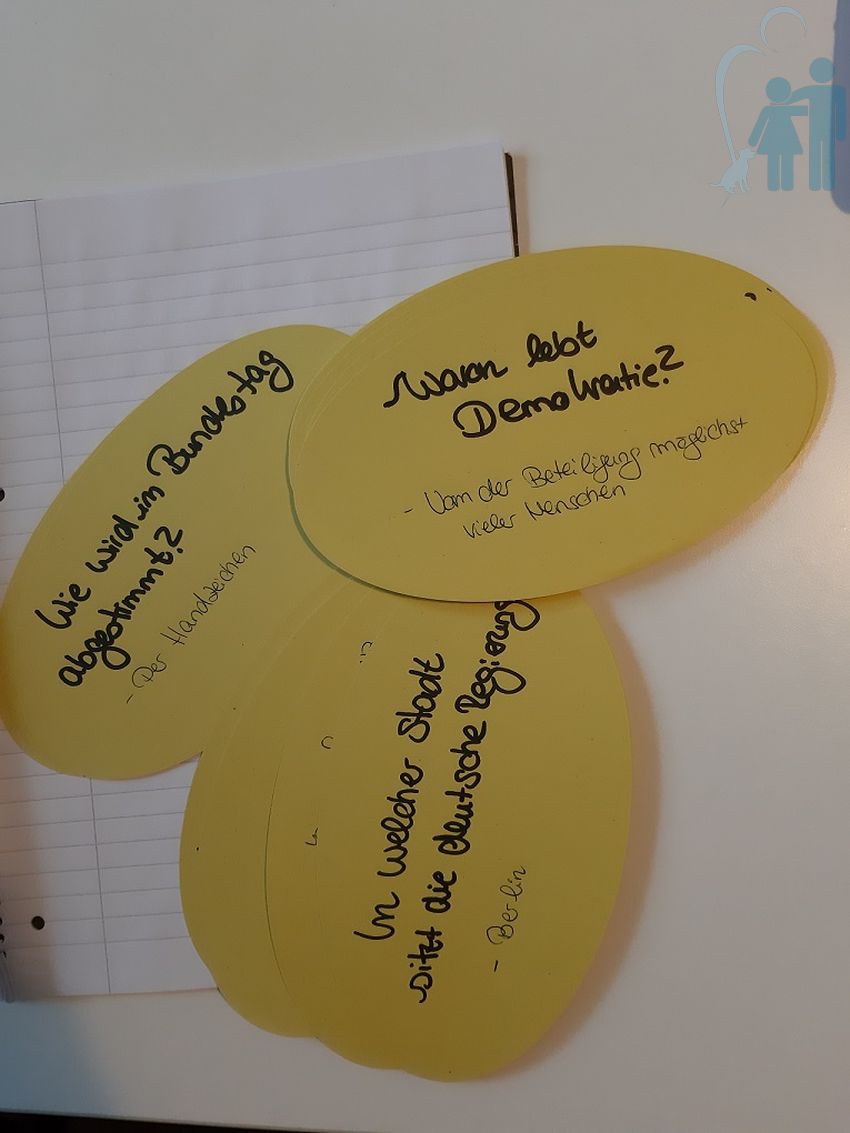 Wovon lebt
Demokratie?
- Von der Beteiligung möglichst
vieler Menschen
Wie wird im Bundestag
abgestimmt?
- Per Handzeichen
In welcher Stadt
sitzt die deutsche Regierung
- Berlin